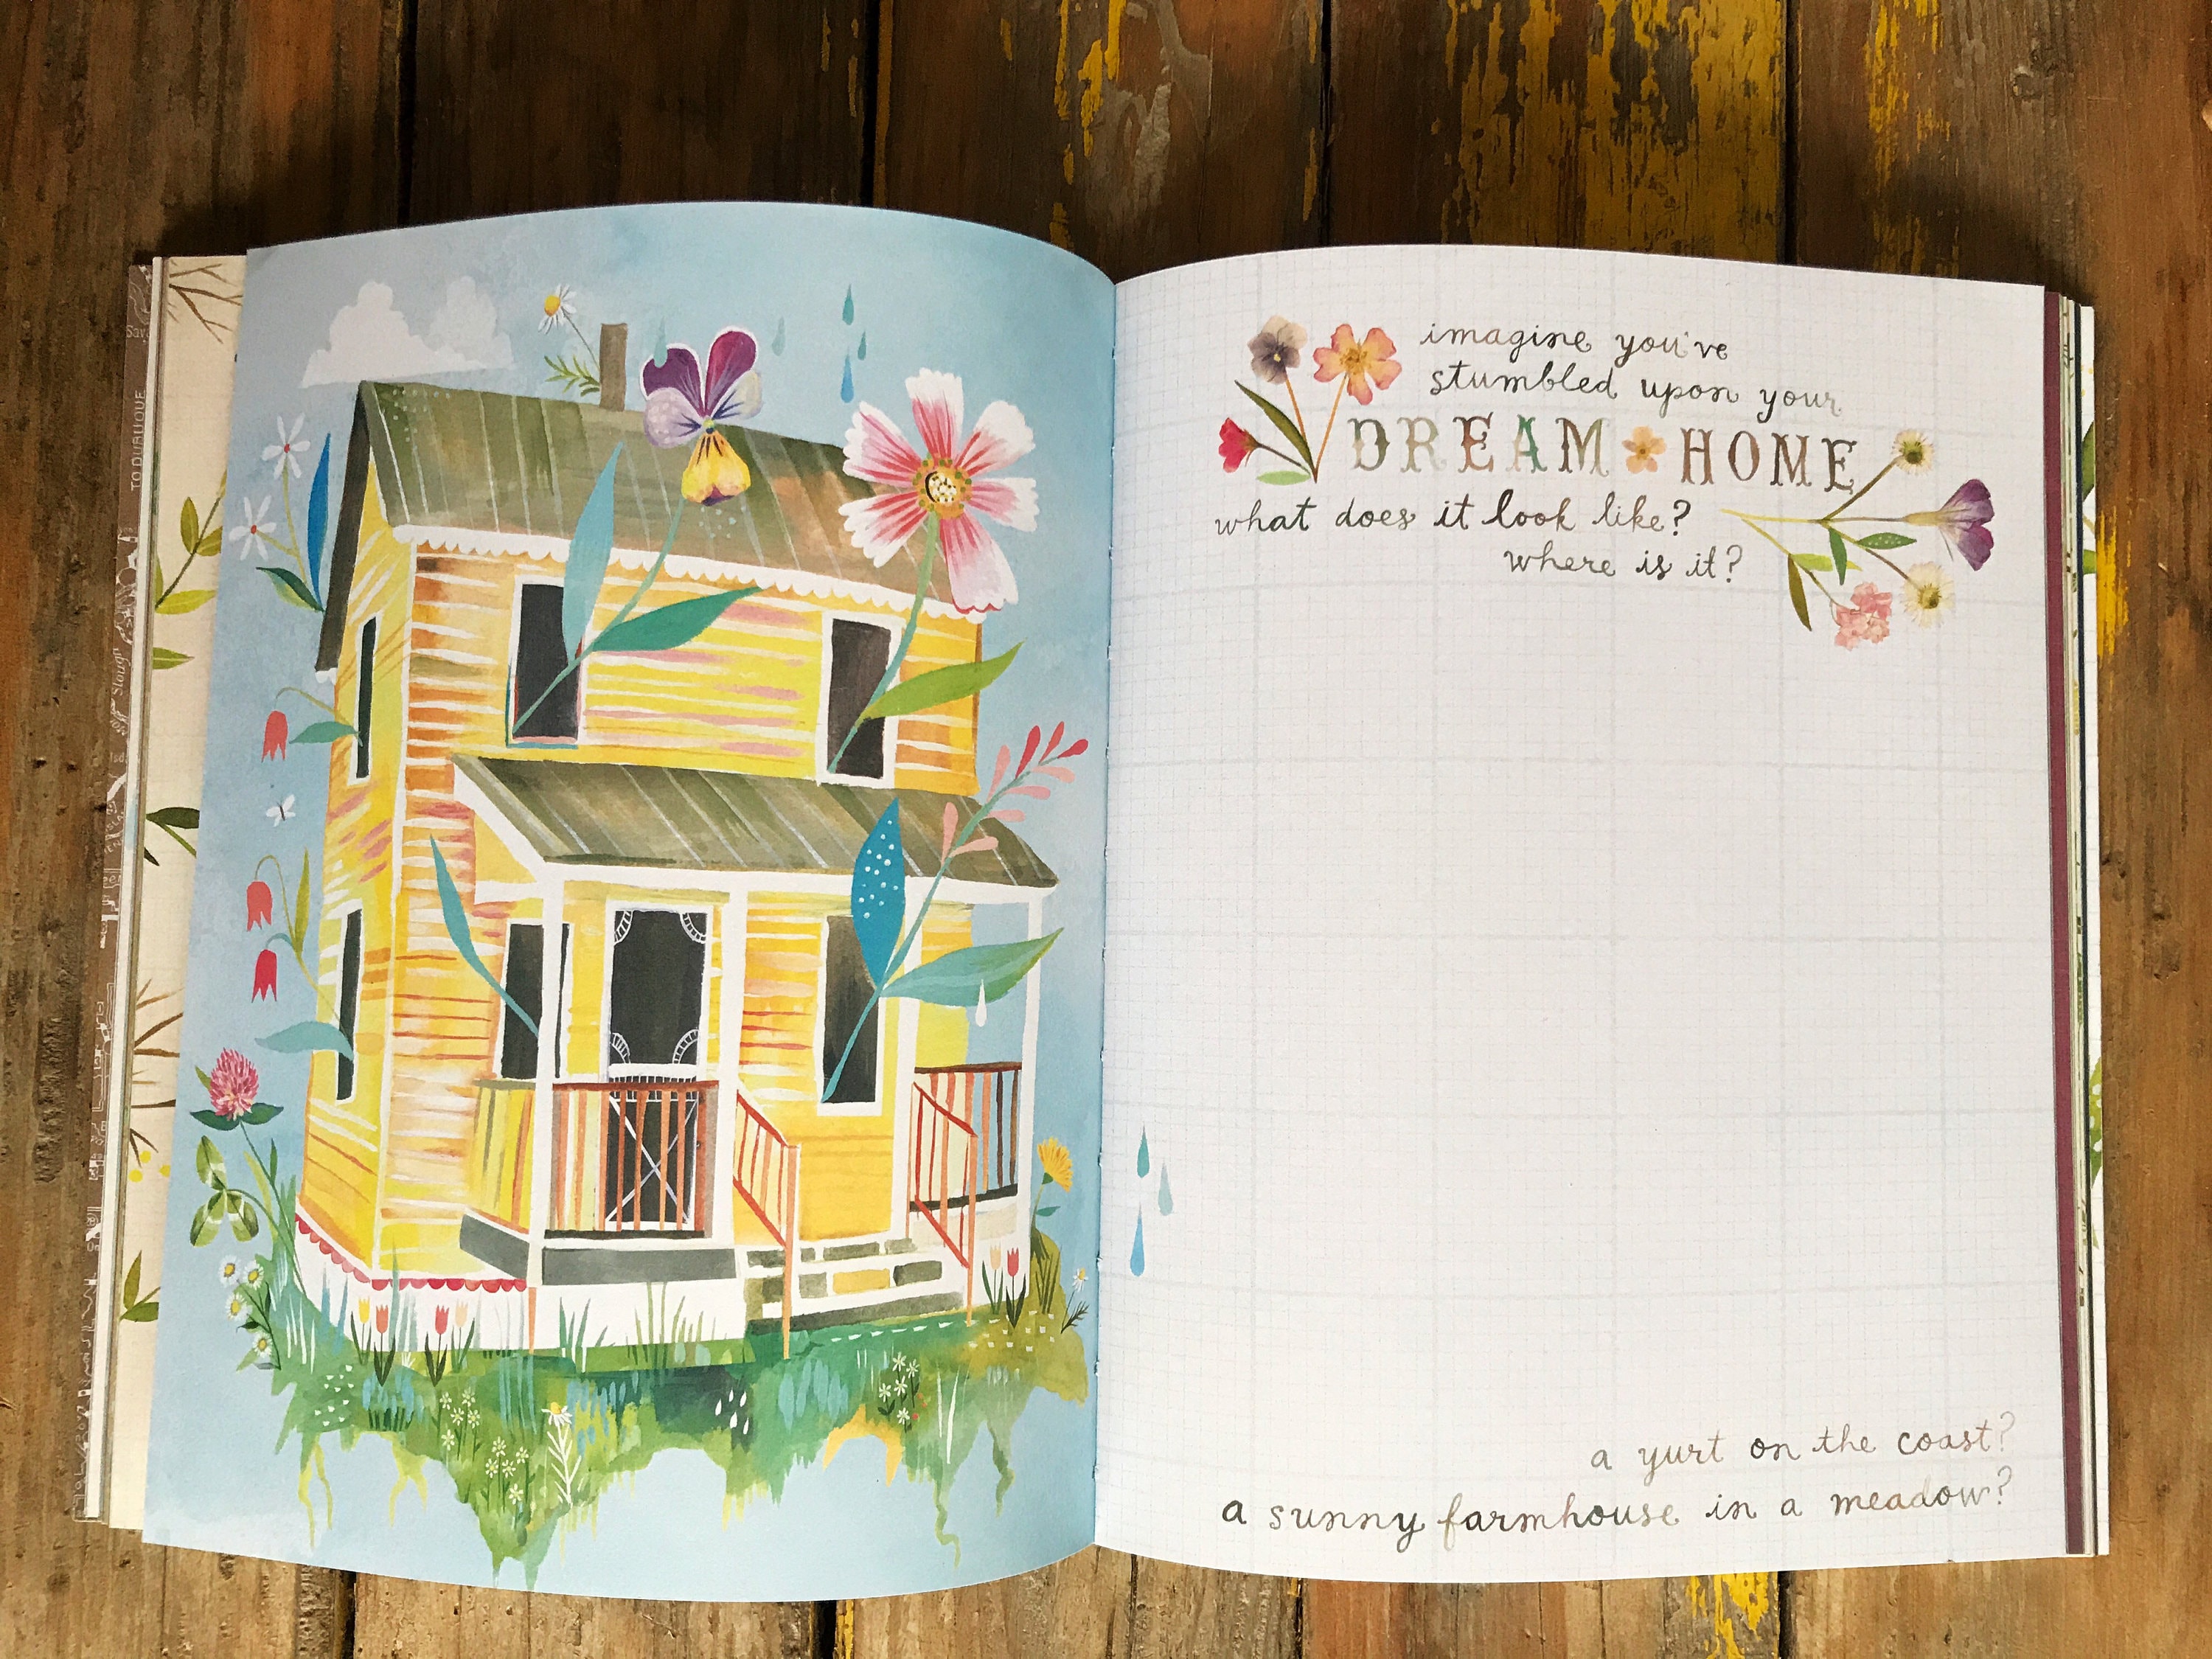 TO DURLIQUE
Slough
imagine you've
stumbled upon your
DREAM HOME
what does it look like?
where is it?
a yurt on the coast?
a sunny farmhouse in a meadow?